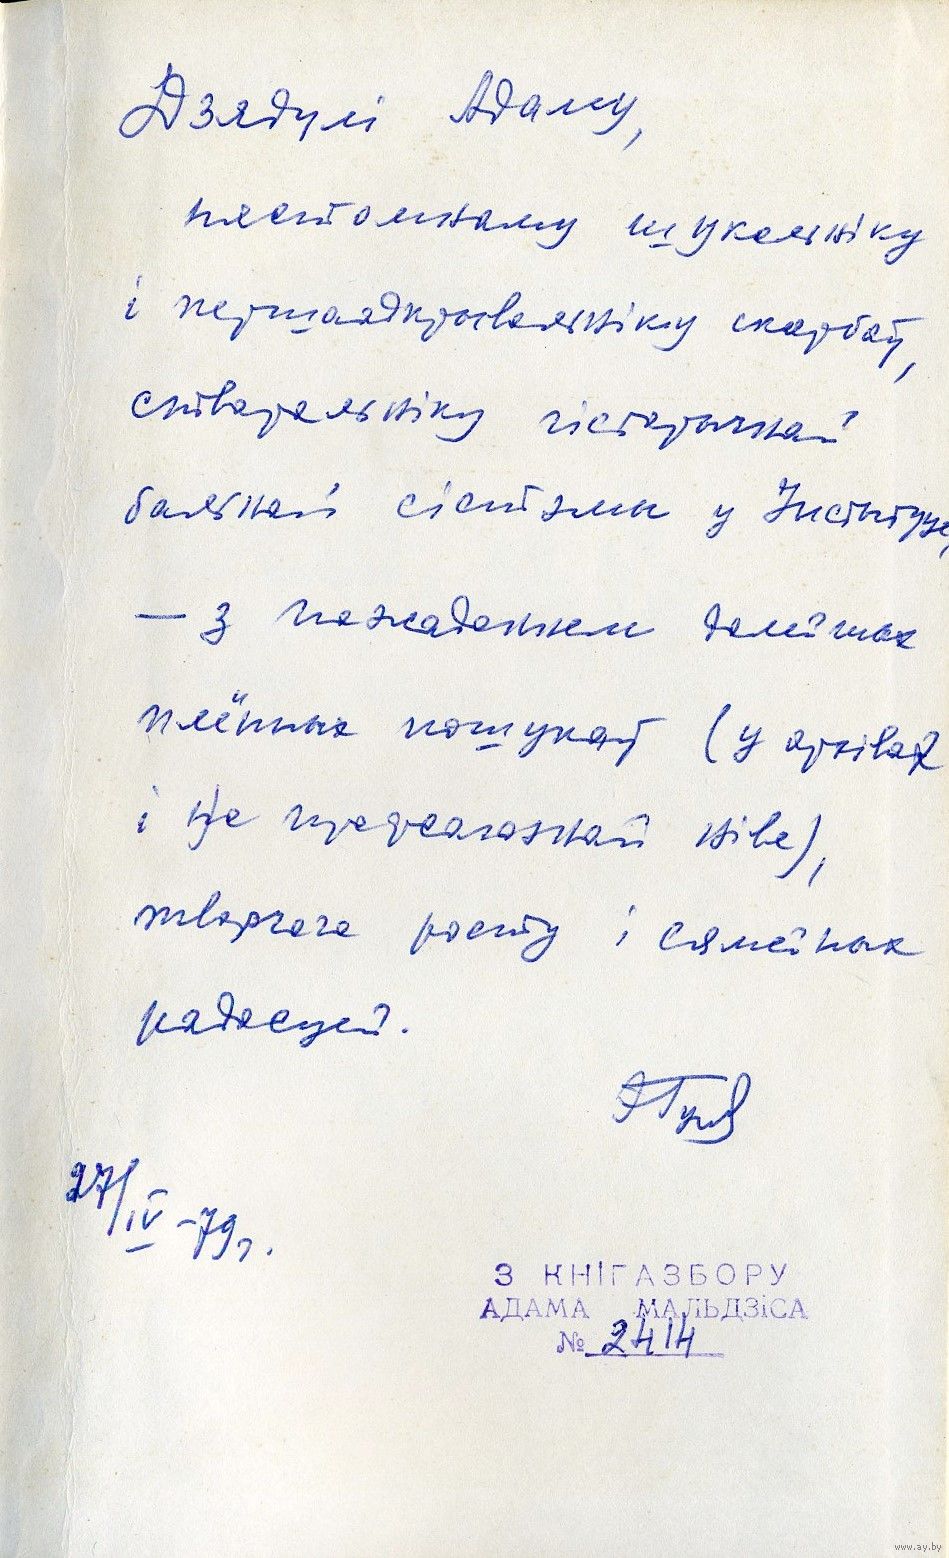 Дзядулі Адаму,
нястомнаму шукальніку
і першаадкрывальніку скарбаў,
стваральніку гістарычнай
бальнай сістэмы у Інстытуце,
— з пажаданнем далейшых
плённых пошукаў (у архівах
і на прафсаюзнай ніве),
творчага росту і сямейных
радасцей.
27/IV-79г.
З КНІГАЗБОРУ
АДАМА МАЛЬДЗІСА
№ 2414
www.ay.by